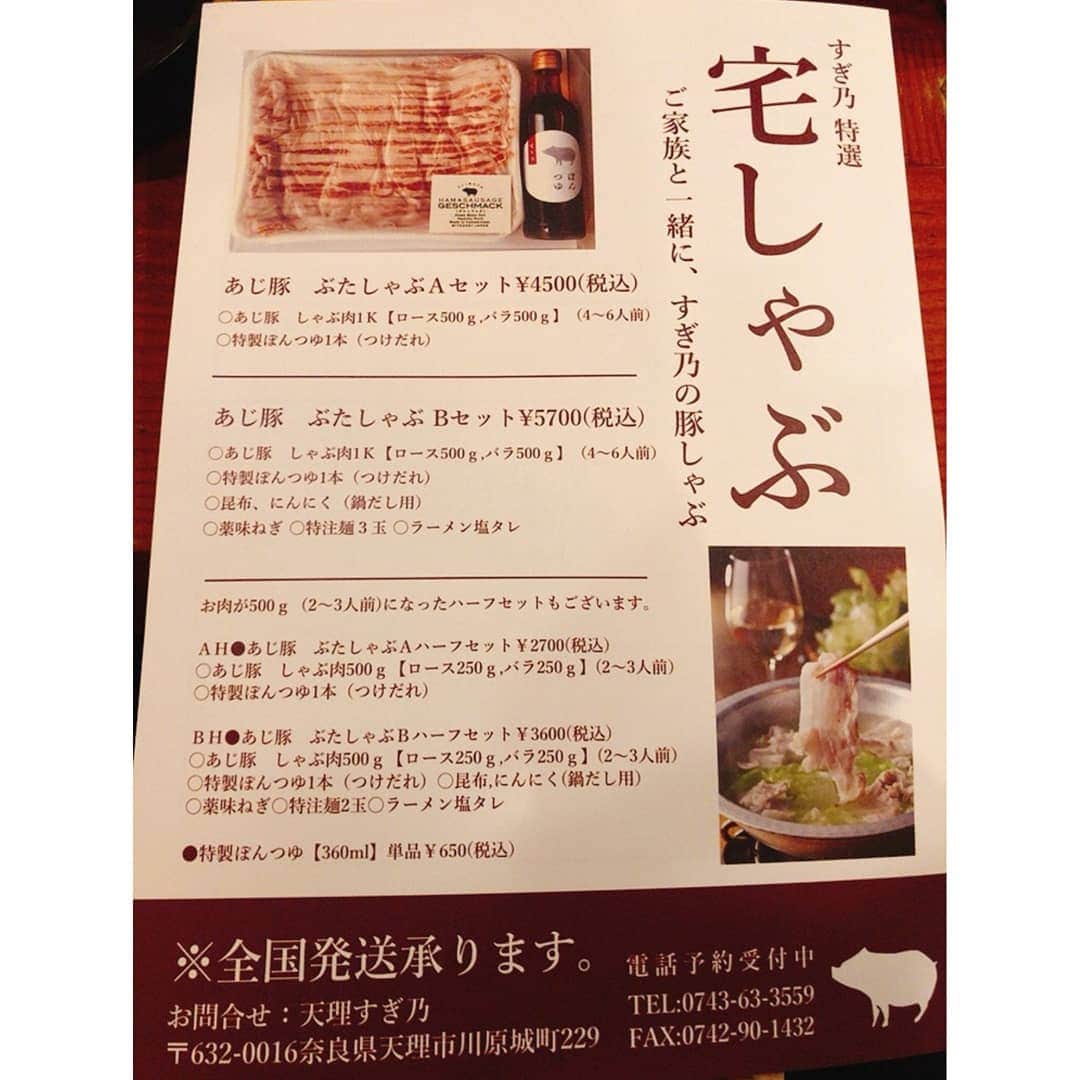 すぎ乃 特選
宅しゃぶ
ご家族と一緒に、すぎ乃の豚しゃぶ
ぽん
つゆ
HAMASAUSAGE
GESCHMACK
あじ豚　ぶたしゃぶAセット¥4500(税込)
○あじ豚　しゃぶ肉1K【ロース500g,バラ500g】（4～6人前）
○特製ぽんつゆ1本（つけだれ）
あじ豚　ぶたしゃぶ Bセット¥5700(税込)
○あじ豚　しゃぶ肉1K【ロース500g,バラ500g】（4～6人前）
○特製ぽんつゆ1本（つけだれ）
○昆布、にんにく（鍋だし用）
○薬味ねぎ ○特注麺３玉 ○ラーメン塩タレ
お肉が500g（2～3人前)になったハーフセットもございます。
AH●あじ豚　ぶたしゃぶAハーフセット¥2700(税込)
○あじ豚　しゃぶ肉500g【ロース250g,バラ250g】(2～3人前)
○特製ぽんつゆ1本（つけだれ）
BH●あじ豚　ぶたしゃぶBハーフセット¥3600(税込)
○あじ豚　しゃぶ肉500g【ロース250g,バラ250g】(2～3人前)
○特製ぽんつゆ1本（つけだれ）○昆布,にんにく(鍋だし用)
○薬味ねぎ○特注麺2玉○ラーメン塩タレ
●特製ぽんつゆ【360ml】単品¥650(税込)
※全国発送承ります。
お問合せ：天理すぎ乃
〒632-0016奈良県天理市川原城町229
電話予約受付中
TEL:0743-63-3559
FAX:0742-90-1432